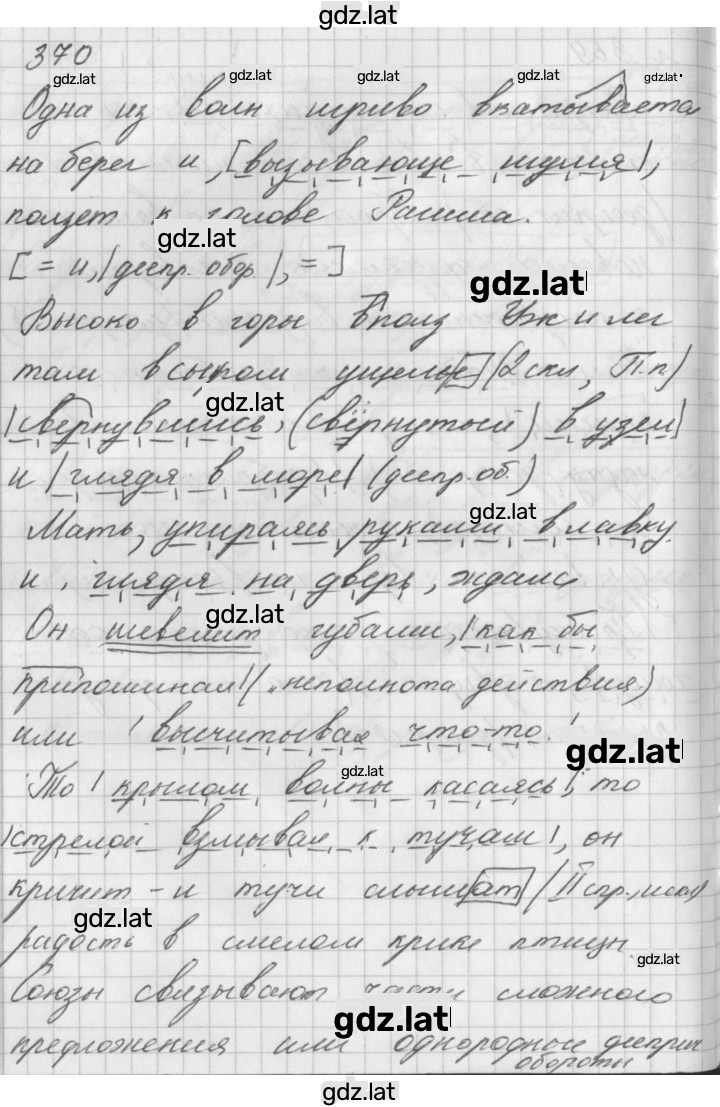 gdz.lat
370
gdz.lat gdz.lat gdz.lat gdz.lat gdz.lat
Одна из волн игриво вкатывается
на берег и, |вызывающе шумя|,
ползет к голове Рагима.
gdz.lat
[= и, |деепр. обор.|, =]
gdz.lat
Высоко в горы вполз Уж и лег
там в сыром ущелье (2 скл, П.п)
gdz.lat
|свернувшись, (свёрнутый) в узел|
и |глядя в море| (деепр. об.)
gdz.lat
Мать, упираясь руками в лавку
и глядя на дверь, ждала
gdz.lat
Он шевелит губами, |как бы
припоминая| (неполнота действия)
или |высчитывая что-то.|
gdz.lat
gdz.lat
То |крылом волны касаясь|, то
|стрелой взмывая к тучам|, он
кричит - и тучи слышат (II спр., искл)
gdz.lat
радость в смелом крике птицы
gdz.lat
Союзы связывают части сложного
gdz.lat
предложения или однородные дееприч
обороты
gdz.lat